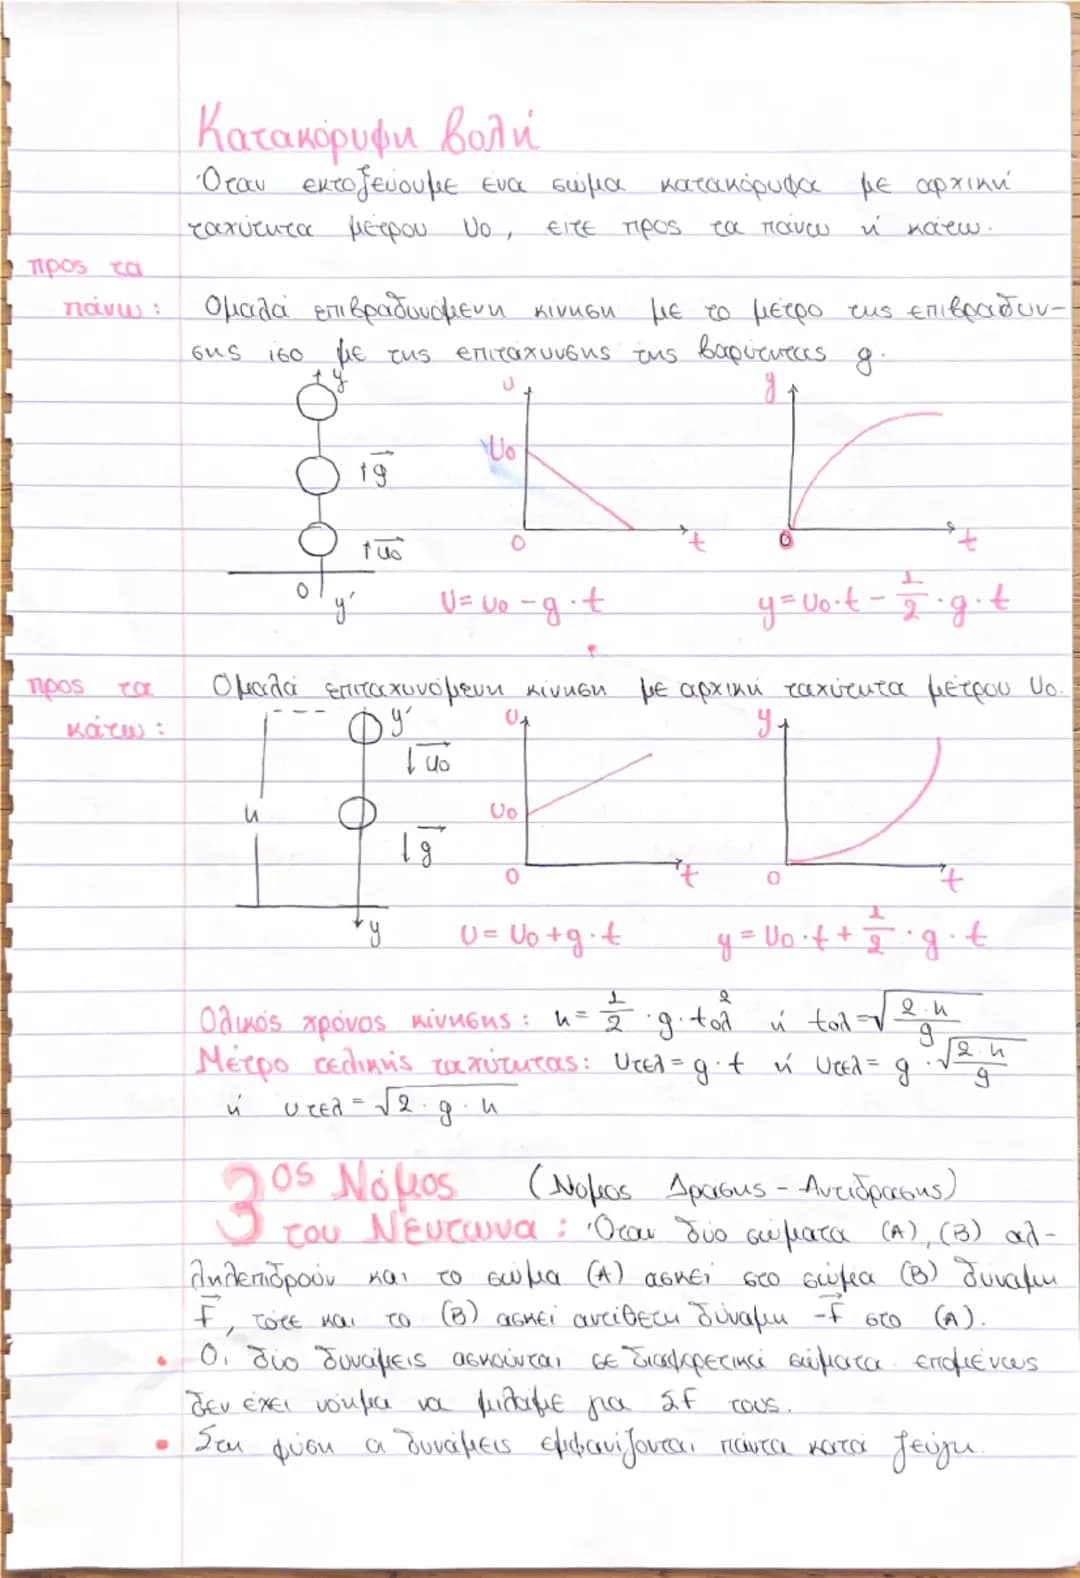 Κατακόρυφη βολή
Όταν εκτοξεύουμε ένα σώμα κατακόρυφα με αρχική
ταχύτητα μέτρου υ₀, είτε προς τα πάνω ή κάτω.
προς τα
πάνω: Ομαλά επιβραδυνόμενη κίνηση με το μέτρο της επιβράδυν-
σης ίσο με της επιτάχυνσης της βαρύτητας g.
y υ y
υ₀
↑g⃗
↑υ⃗₀
0 t 0 t
0 y'
υ = υ₀ - g · t y = υ₀ · t - 1/2 · g · t
προς τα Ομαλά επιταχυνόμενη κίνηση με αρχική ταχύτητα μέτρου υ₀.
κάτω:
y' υ y
↓υ⃗₀
h υ₀
↓g⃗
0 t 0 t
y υ = υ₀ + g · t y = υ₀ · t + 1/2 · g · t
Ολικός χρόνος κίνησης: h = 1/2 · g · tολ² ή tολ = √(2·h/g)
Μέτρο τελικής ταχύτητας: υτελ = g · t ή υτελ = g · √(2·h/g)
ή υτελ = √(2 · g · h)
3ος Νόμος (Νόμος Δράσης - Αντίδρασης)
του Νεύτωνα: Όταν δύο σώματα (Α), (Β) αλ-
ληλεπιδρούν και το σώμα (Α) ασκεί στο σώμα (Β) δύναμη
F⃗, τότε και το (Β) ασκεί αντίθετη δύναμη -F⃗ στο (Α).
• Οι δύο δυνάμεις ασκούνται σε διαφορετικά σώματα επομένως
δεν έχει νόημα να μιλάμε για ΣF τους.
• Στη φύση οι δυνάμεις εμφανίζονται πάντα κατά ζεύγη.